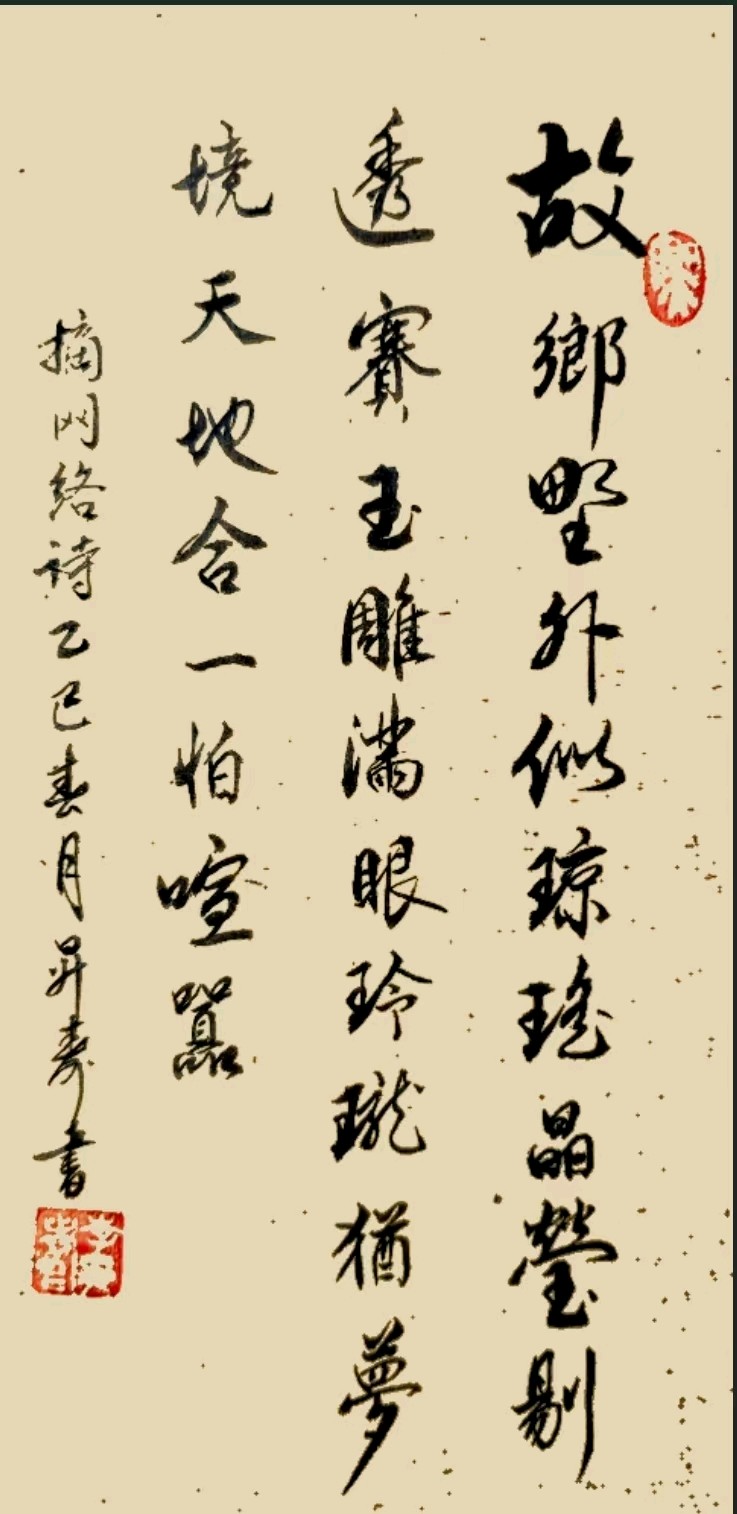 故鄉野外似瓊瑤晶瑩剔
透賽玉雕滿眼玲瓏猶夢
境天地合一怕喧囂
摘网络诗乙巳春月昇壽書